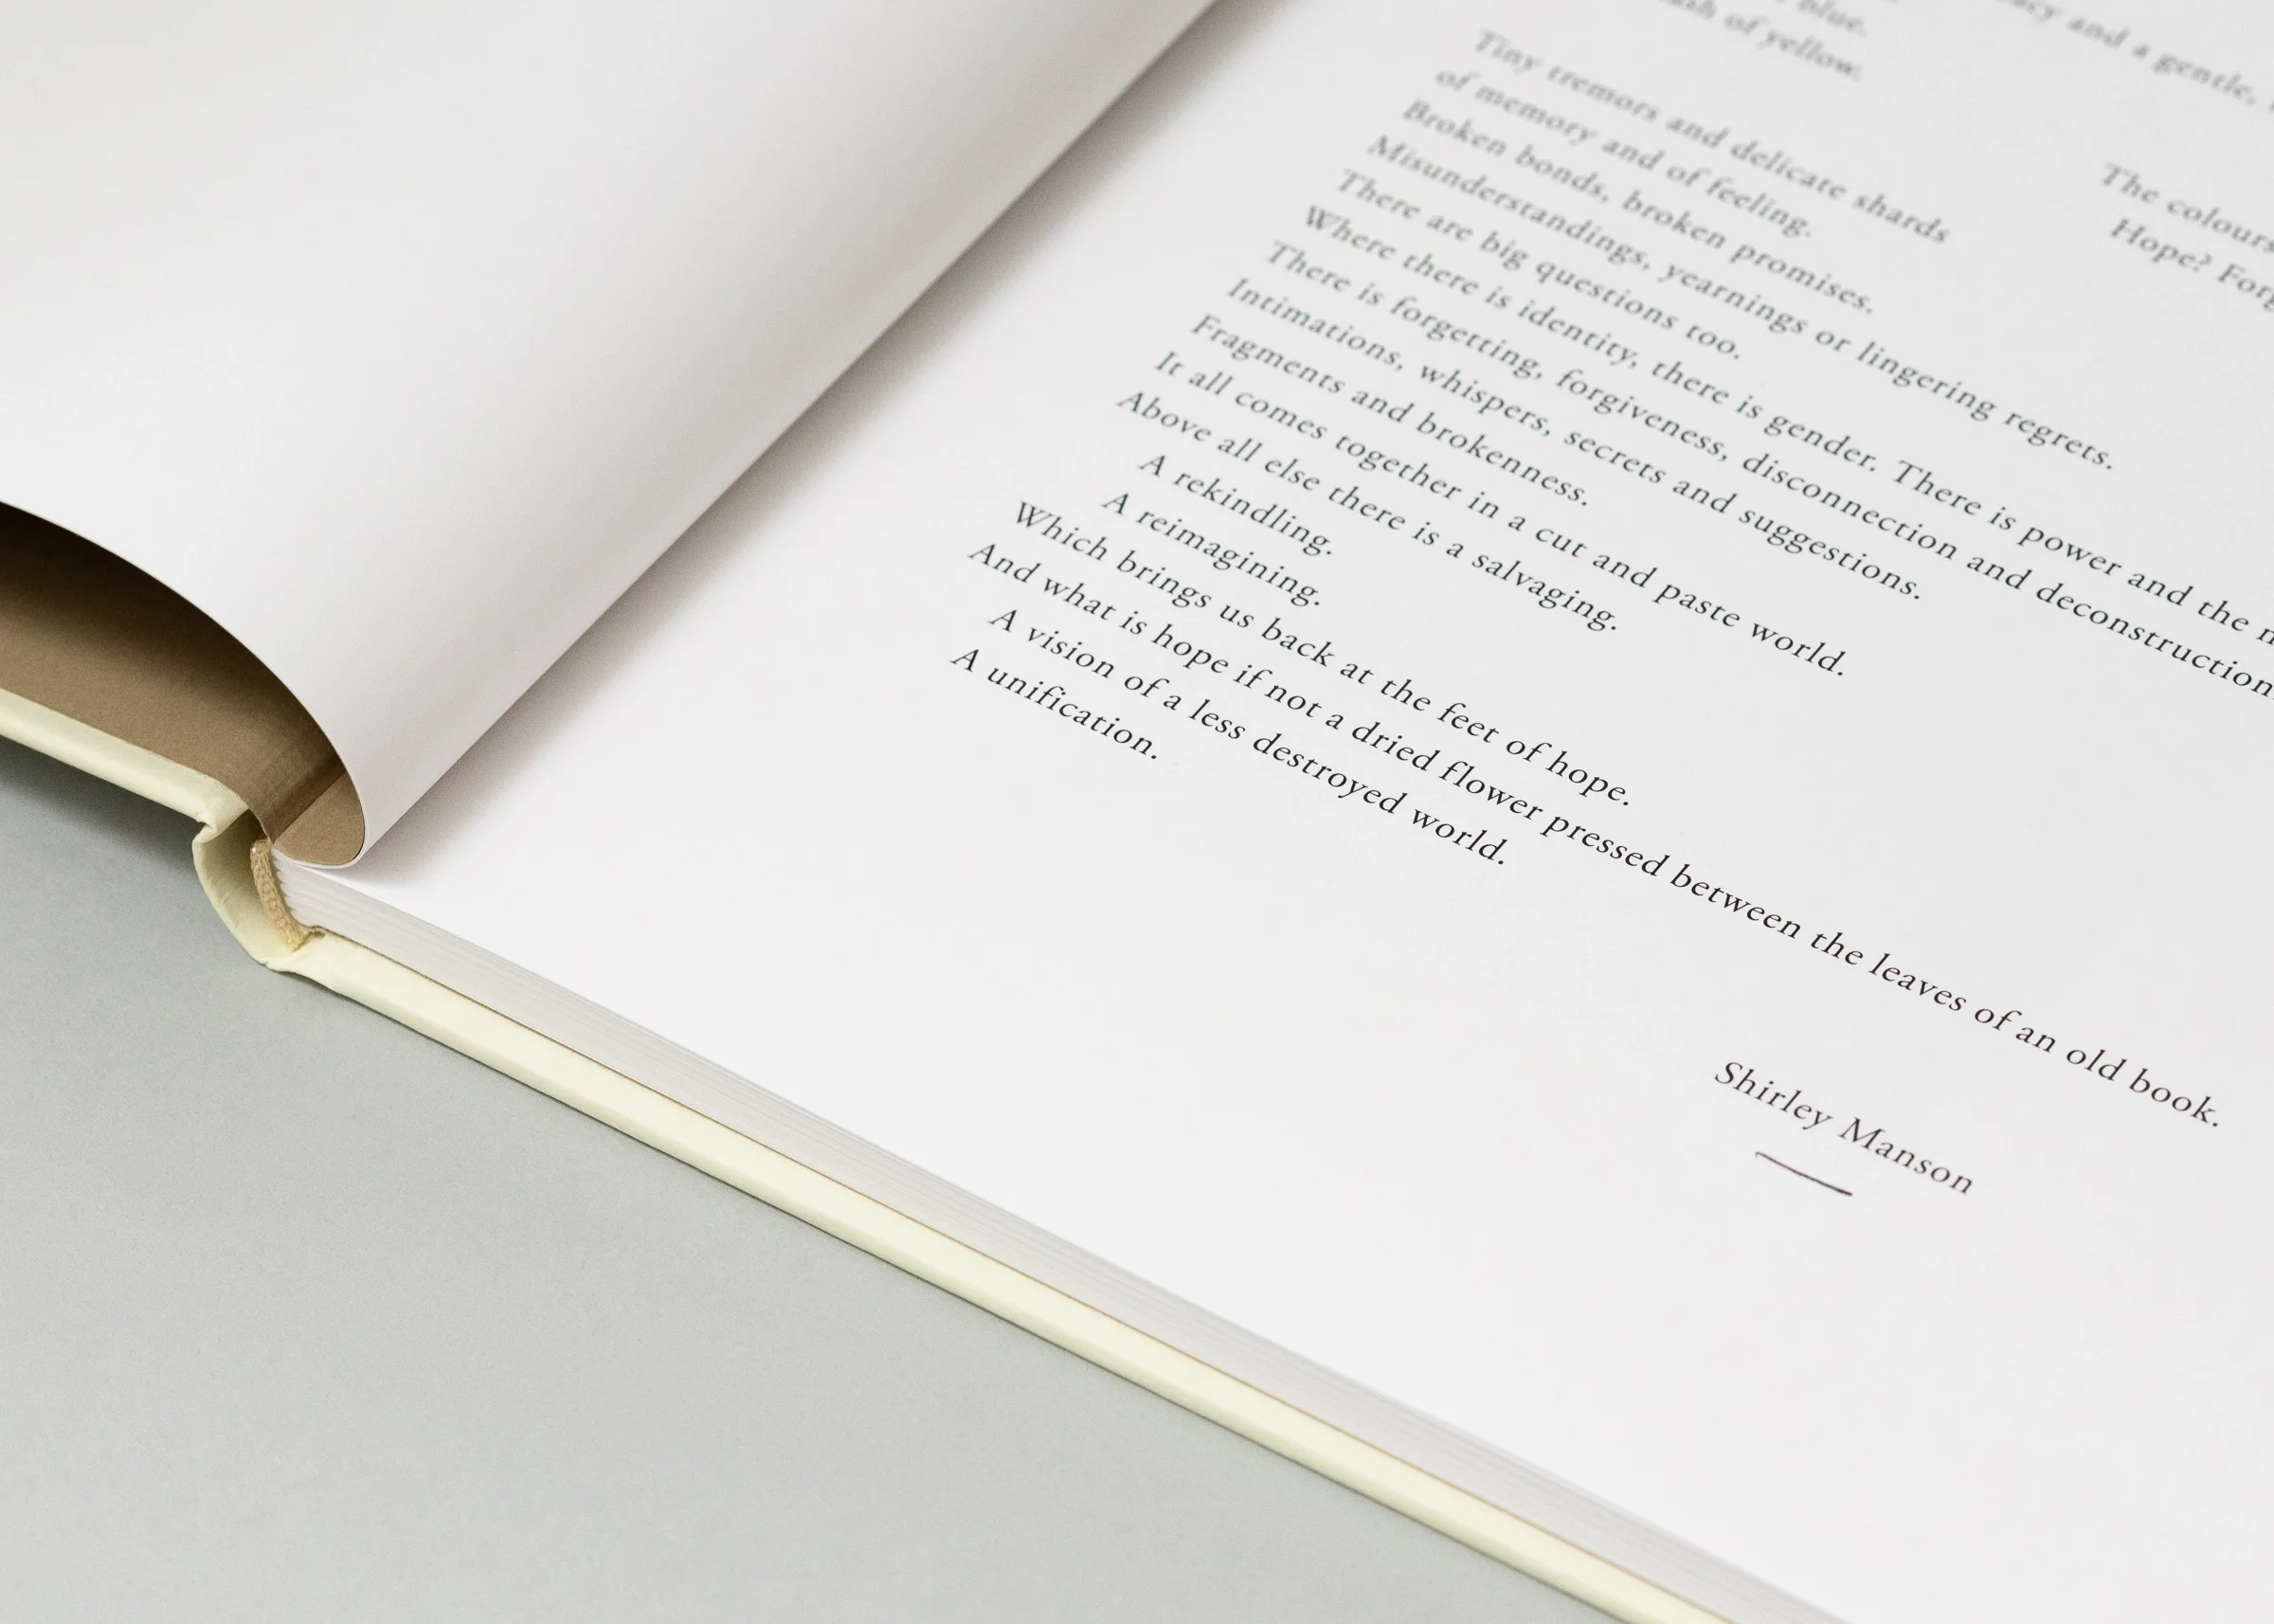 blue.
of yellow.
and a gentle,
Tiny tremors and delicate shards
of memory and of feeling.
The colours
Hope?
Broken bonds, broken promises.
Misunderstandings, yearnings or lingering regrets.
There are big questions too.
Where there is identity, there is gender. There is power and the
There is forgetting, forgiveness, disconnection and deconstruction
Intimations, whispers, secrets and suggestions.
Fragments and brokenness.
It all comes together in a cut and paste world.
Above all else there is a salvaging.
A rekindling.
A reimagining.
Which brings us back at the feet of hope.
And what is hope if not a dried flower pressed between the leaves of an old book.
A vision of a less destroyed world.
A unification.
Shirley Manson